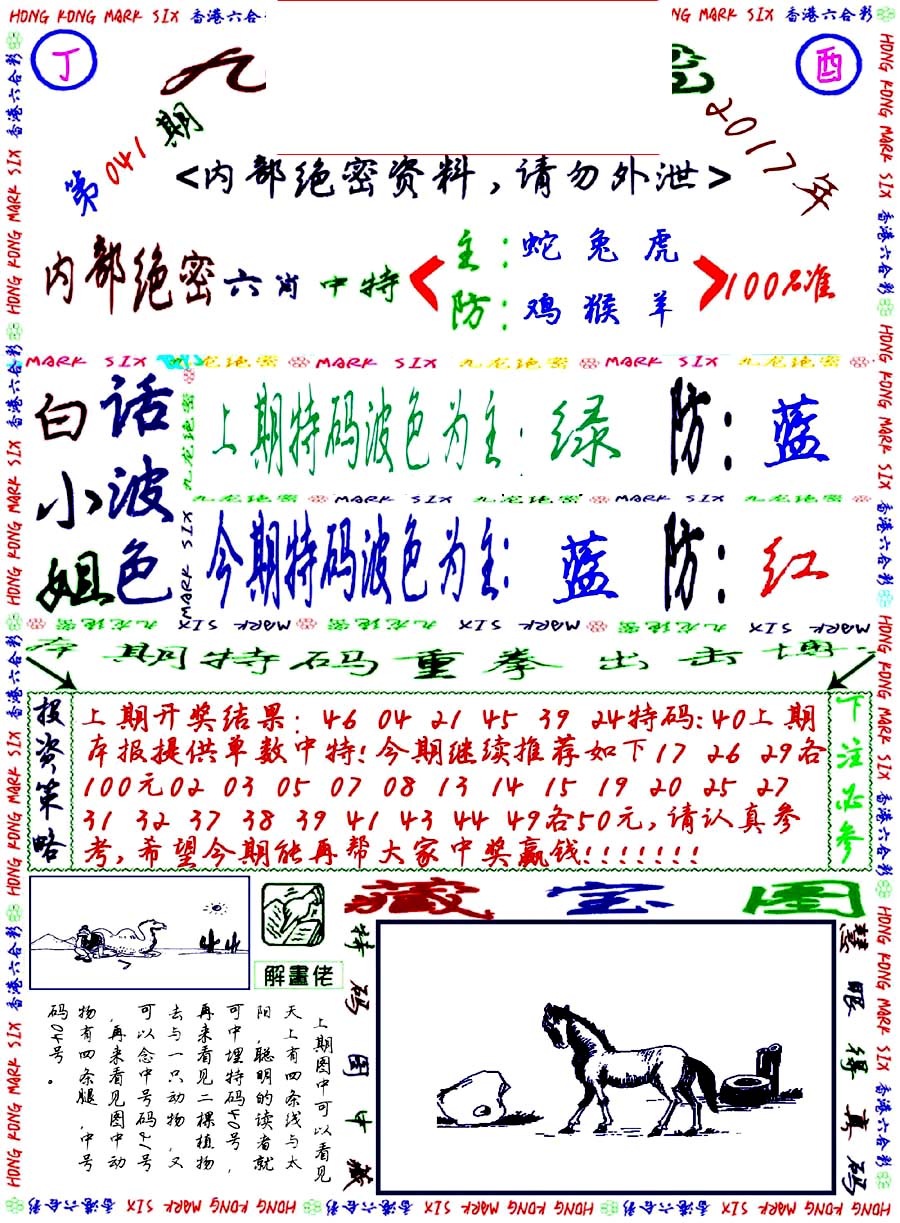 HONG KONG MARK SIX 香港六合彩
丁
酉
九
密
第041期
2017年
<内部绝密资料,请勿外泄>
内部绝密六肖中特
主:蛇兔虎
防:鸡猴羊
100%准
MARK SIX 九龙绝密 MARK SIX 九龙绝密 MARK SIX 九龙绝密
白话
小波
姐色
上期特码波色为主:绿 防:蓝
九龙绝密 MARK SIX 九龙绝密 MARK SIX 九龙绝密
今期特码波色为主:蓝 防:红
本期特码重拳出击博
投资策略
上期开奖结果: 46 04 21 45 39 24特码:40上期
本报提供单数中特!今期继续推荐如下17 26 29各
100元02 03 05 07 08 13 14 15 19 20 25 27
31 32 37 38 39 41 43 44 49各50元,请认真参
考,希望今期能再帮大家中奖赢钱!!!!!!!
下注必参
藏宝图
解畫佬
上期图中可以看见
天上有四条线与太
阳,聪明的读者就
可中埋特码40号,
再来看见二棵植物
去与一只动物,又
可以念中号码21号
,再来看见图中动
物有四条腿,中号
码04号。
特码图中藏
慧眼得真码